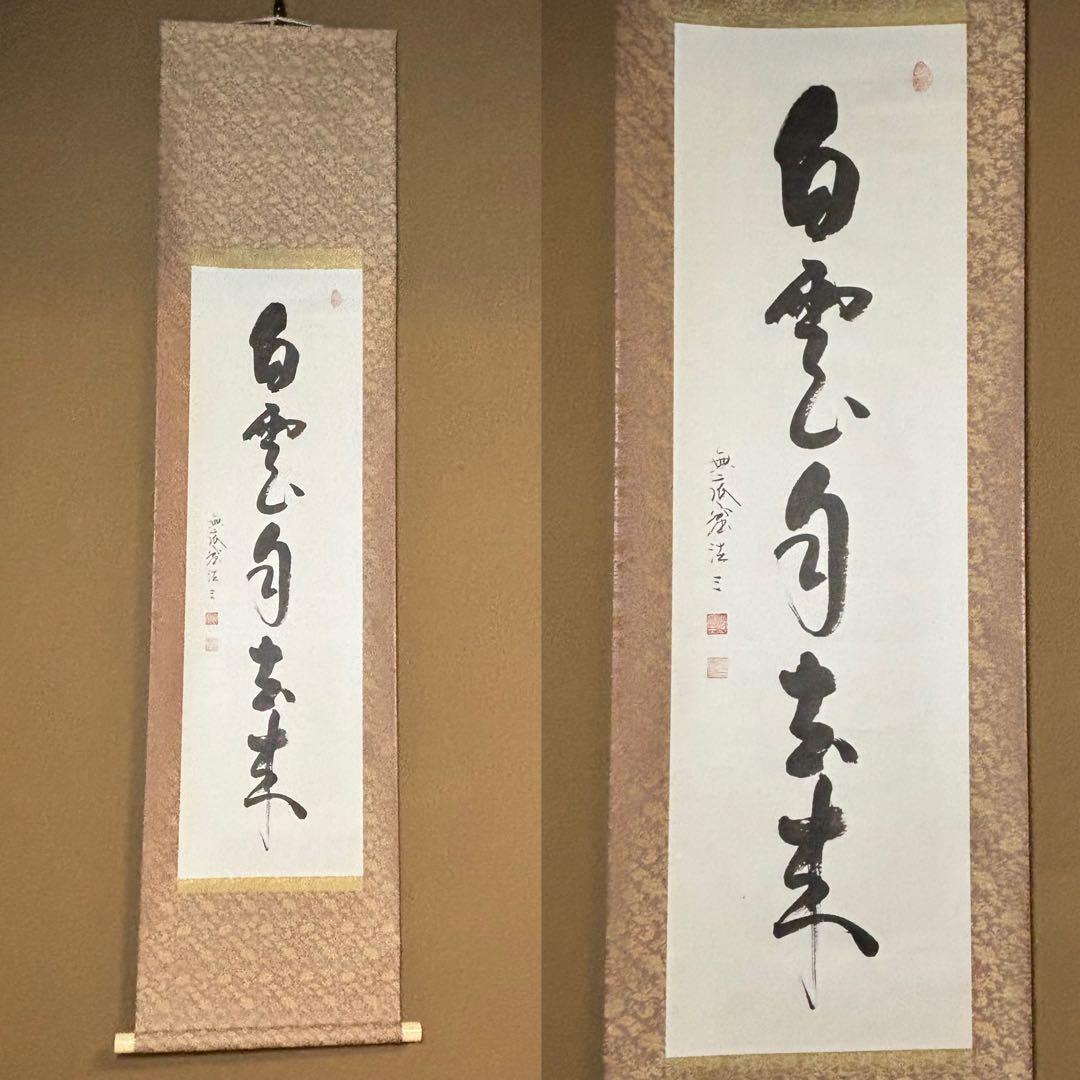 白雲自去来
無底窟法三
白雲自去来
無底窟法三